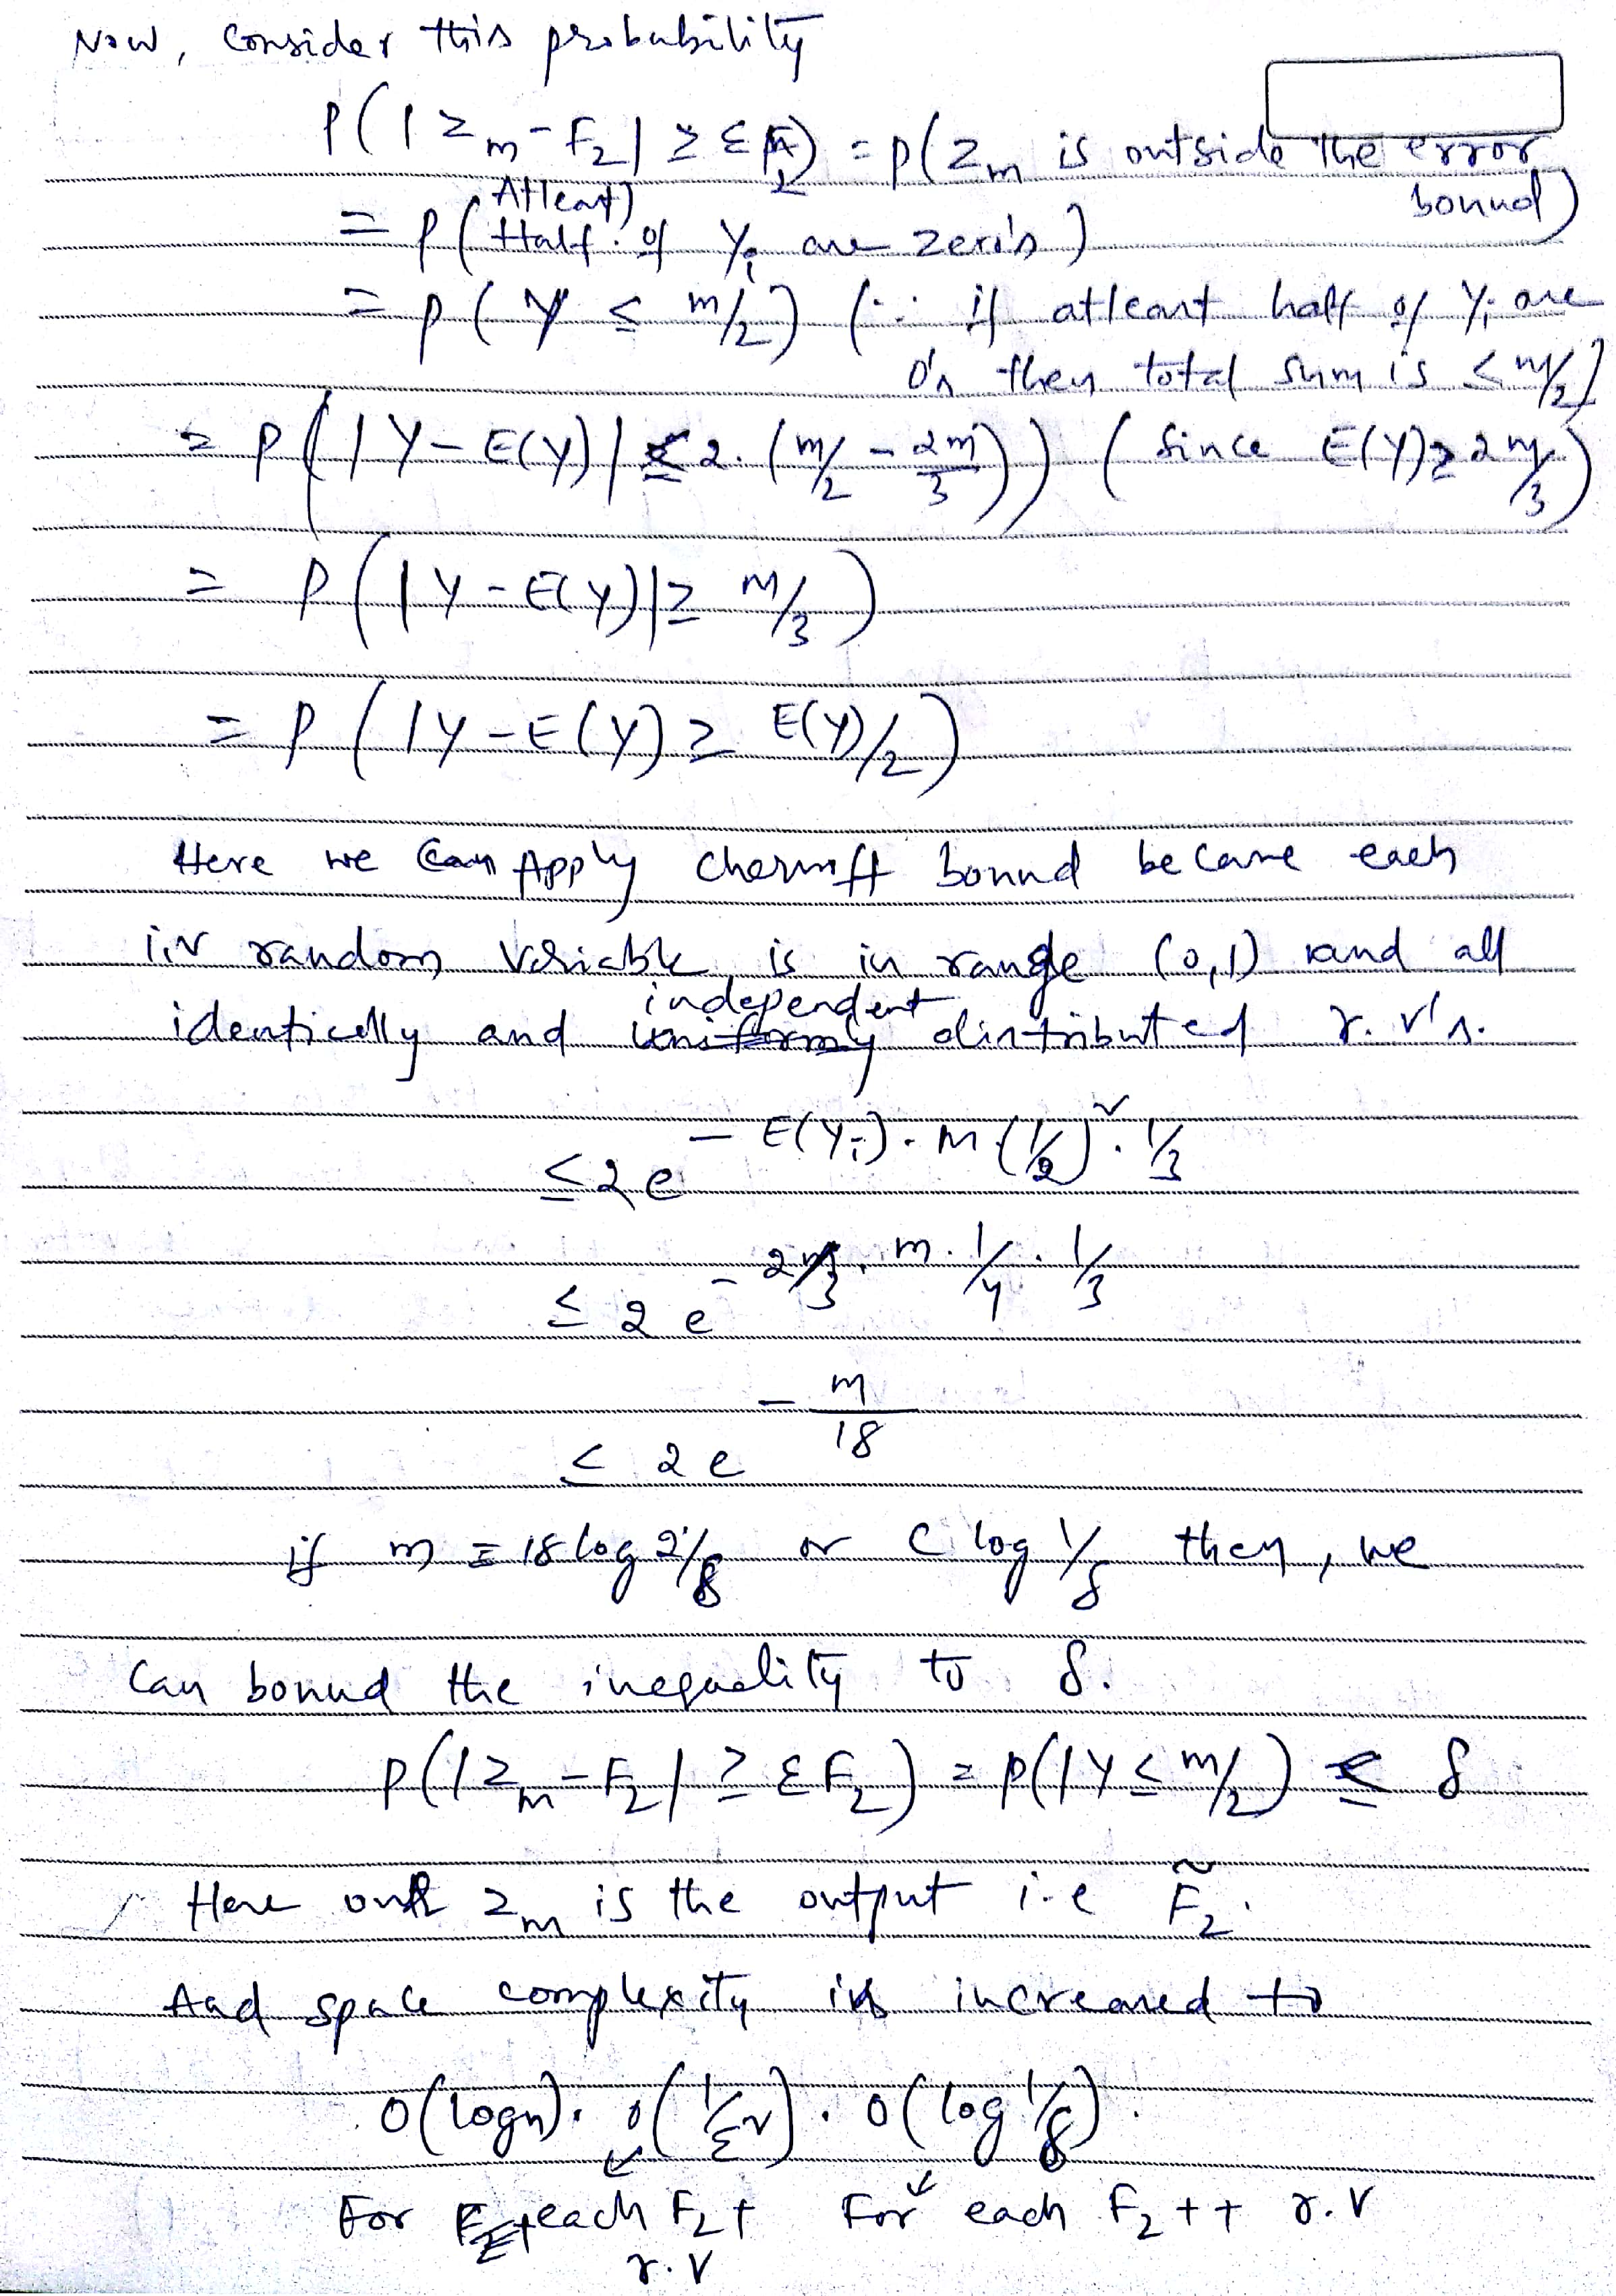 Now, consider this probability
P(|Z_m - F_2| ≥ ε F_2) = P(Z_m is outside the error
bound)
= P(Atleast Half of Y_i are zero's)
= P(Y ≤ m/2) (∵ if atleast half of Y_i are
0's then total sum is ≤ m/2)
= P(|Y - E(Y)| ≤ 2·(m/2 - 2m/3)) (Since E(Y) ≥ 2m/3)
= P(|Y - E(Y)| ≥ m/3)
= P(|Y - E(Y) ≥ E(Y)/2)
Here we can Apply chernoff bound because each
random variable is in range (0,1) and all
identically and independent distributed r.v's.
≤ 2 e^{- E(Y_i)·m (1/2)^2 · 1/3}
≤ 2 e^{- 2/3 · m · 1/4 · 1/3}
≤ 2 e^{- m/18}
if m = 18 log 2/δ or C log 1/δ then, we
can bound the inequality to δ.
P(|Z_m - F_2| ≥ ε F_2) = P(|Y ≤ m/2) ≤ δ
Here Z_m is the output i.e F̃_2.
And space complexity is increased to
O(log n) · O(1/ε^2) · O(log 1/δ).
For each F_2+ For each F_2++ r.v
r.v